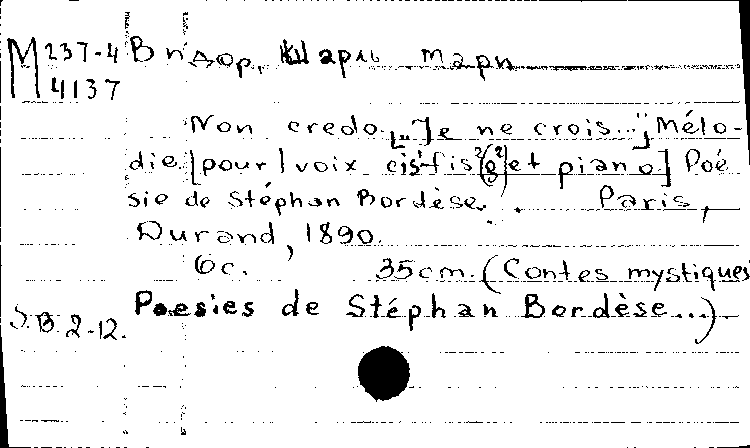 М 237-4 Видор, Шарль Мари
4137
Non credo „Je ne crois..." Mélo-
die [pour 1 voix cis¹-fis²(g²) et piano] Poé
sie de Stéphan Bordèse. Paris,
Durand, 1890.
6c. 35cm. (Contes mystiques
Poesies de Stéphan Bordèse...)
В. 2-12.